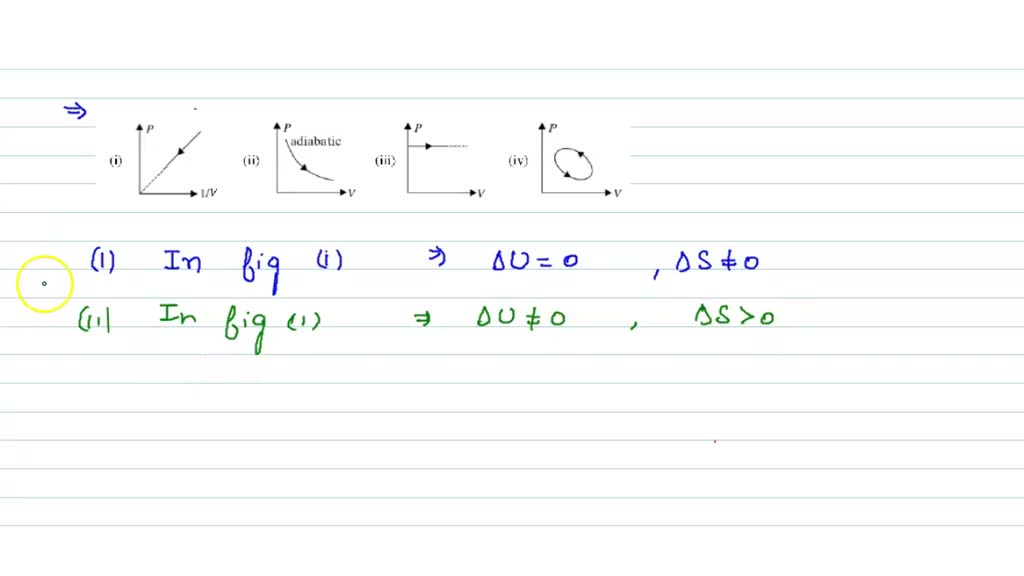 ⇒
(i) P 1/V (ii) P adiabatic V (iii) P V (iv) P V
(1) In fig (i) ⇒ ΔU = 0 , ΔS ≠ 0
(11) In fig (1) ⇒ ΔU ≠ 0 , ΔS > 0